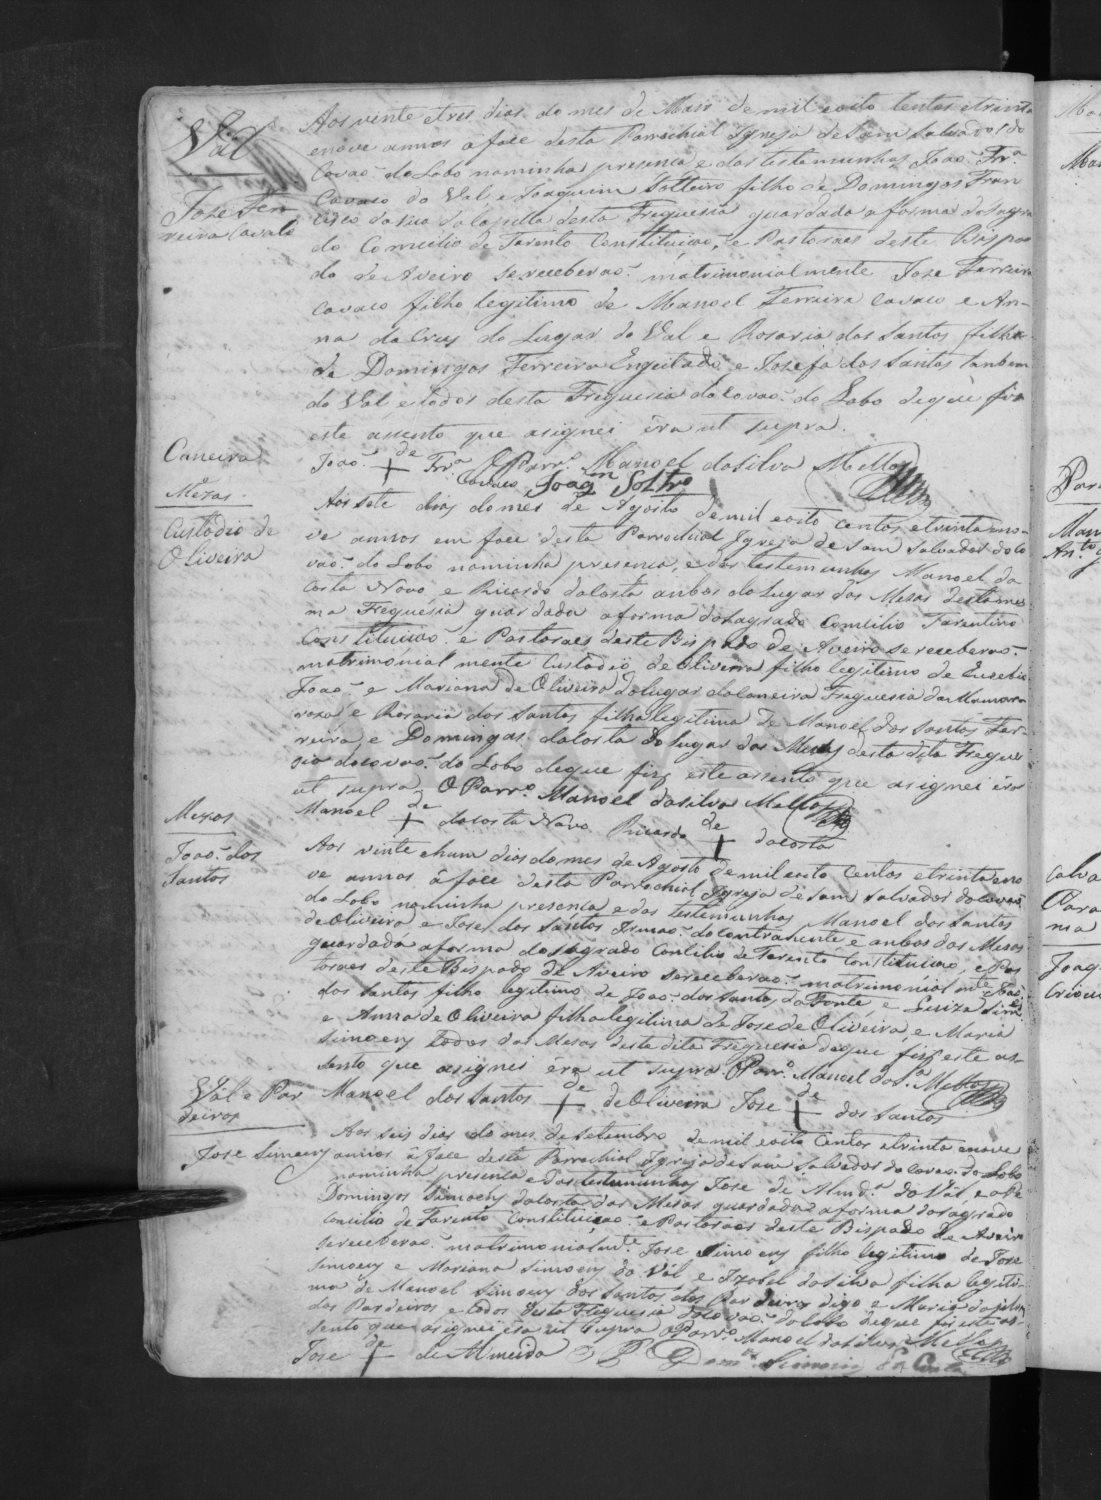 Val
Jose Fer
reira Cavaco
Aos vinte e tres dias do mes de Maio de mil e oito centos e trinta
e nove annos á face desta Parrochial Igreja de Sam Salvador do
Covao do Lobo na minha presença e das testemunhas Joaõ Frª
Cavaco do Val e Joaquim Solteiro filho de Domingos Fran
cisco da desta Freguesia guardada a forma do Sagra
do Concilio de Tarento Constituiçaõ, e Pastoraes deste Bispa
do de Aveiro se receberaõ matrimonialmente Jose Ferreira
Cavaco filho legitimo de Manoel Ferreira Cavaco e An-
na da Cruz do Lugar do Val e Rosaria dos Santos filha
de Domingos Ferreira Engeitado e Josefa dos Santos tambem
do Val e todos desta Freguesia do Covaõ do Lobo de que fiz
este assento que asignei éra ut supra.
Joaõ de + Frª Cavaco O Parrº Manoel da Silva Mello
Joaqm Soltrº
Caneira
Mezas
Custodio de
Oliveira
Aos sete dias do mes de Agosto de mil e oito centos e trinta e no-
ve annos em face desta Parrochial Igreja de Sam Salvador do Co
vaõ do Lobo na minha presença, e das testemunhas Manoel da
Costa Novo e Ricardo da Costa anbos do Lugar das Mezas desta mes
ma Freguesia guardada a forma do Sagrado Concilio Tarentino
Constituiçaõ e Pastoraes deste Bispado de Aveiro se receberaõ
matrimonial mente Custodio de Oliveira filho legitimo de Eusebio
Joaõ e Mariana de Oliveira do lugar da Caneira Freguesia da Mamar
roza e Rosaria dos Santos filha legitima de Manoel dos Santos Fer-
reira e Domingas da Costa do lugar das Mezas desta dita Fregue
sia do Covaõ do Lobo de que fiz este assento que asignei éra
ut supra O Parrº Manoel da Silva Mello
Manoel de + da Costa Novo Ricardo de + da Costa
Mezas
Joaõ dos
Santos
Aos vinte e hum dias do mes de Agosto de mil e oito centos e trinta e no
ve annos á face desta Parrochial Igreja de Sam Salvador do Covaõ
do Lobo na minha presença e das testemunhas Manoel dos Santos
de Oliveira e Jose dos Santos Irmaõ do Contrahente e anbos das Mezas
guardada a forma do sagrado Concilio de Tarento Constituiçaõ, e Pas
toraes deste Bispado de Aveiro se receberaõ matrimonial mte Joaõ
dos Santos filho legitimo de Joaõ dos Santos da Fonte, e Luiza Simº
e Anna de Oliveira filha legitima de Jose de Oliveira, e Maria
Simoens todos das Mezas desta dita Freguesia de que fiz este as-
sento que asignei éra ut supra O Parrº Manoel da Sª Mello
Manoel dos Santos de + de Oliveira Jose de + dos Santos
Val e Par
deiros
Jose Simoens
Aos seis dias do mes de Setembro de mil e oito centos e trinta e nove
annos á face desta Parrochial Igreja de Sam Salvador do Covaõ do Lobo
na minha presença e das testemunhas Jose de Almdª do Val, e o Pe
Domingos Simoens da Costa das Mezas guardada a forma do sagrado
Concilio de Tarento Constituiçaõ e Pastoraes deste Bispado de Aveiro
se receberaõ matrimonialmte Jose Simoens filho legitimo de Jose
Simoens e Mariana Simoens do Val e Izabel da Silva filha legiti-
ma de Manoel Simoens dos Santos dos Pardeiros digo e Maria da Silva
dos Pardeiros e todos desta Freguesia do Covaõ do Lobo de que fiz este as-
sento que asignei éra ut supra O Parrº Manoel da Silva Mello
Jose de + de Almeida O Pe Domos Simoens da Costa